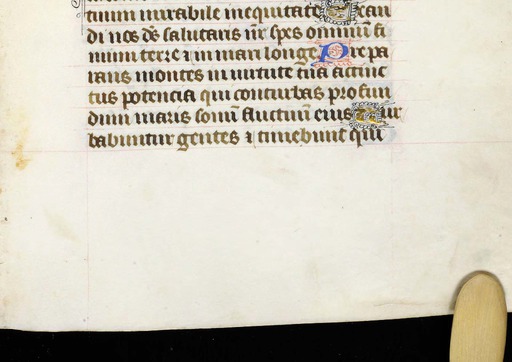 tuum mirabile in equitate Exau
di nos ds salutaris nr spes omniu fi
nium terre ⁊ in mari longe Prepa
rans montes in virtute tua accinc
tus potencia qui conturbas profun
dum maris sonu fluctuum eius Tur
babuntur gentes ⁊ timebunt qui